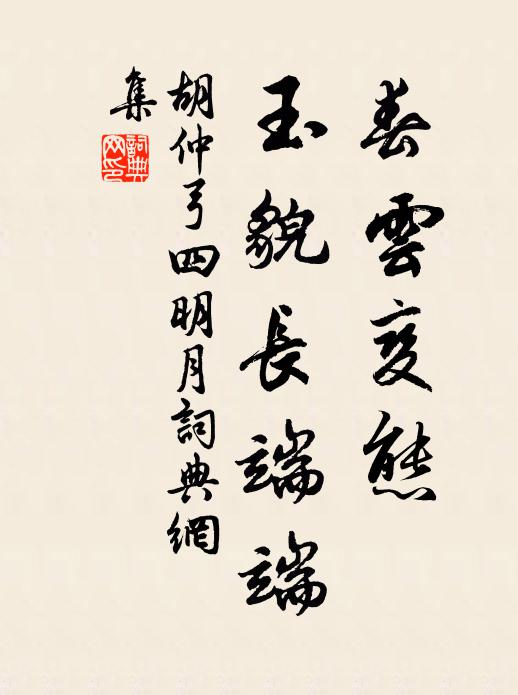 春雲變態
玉貌長端端
胡仲弓四明月詞典網
集
詞典網印